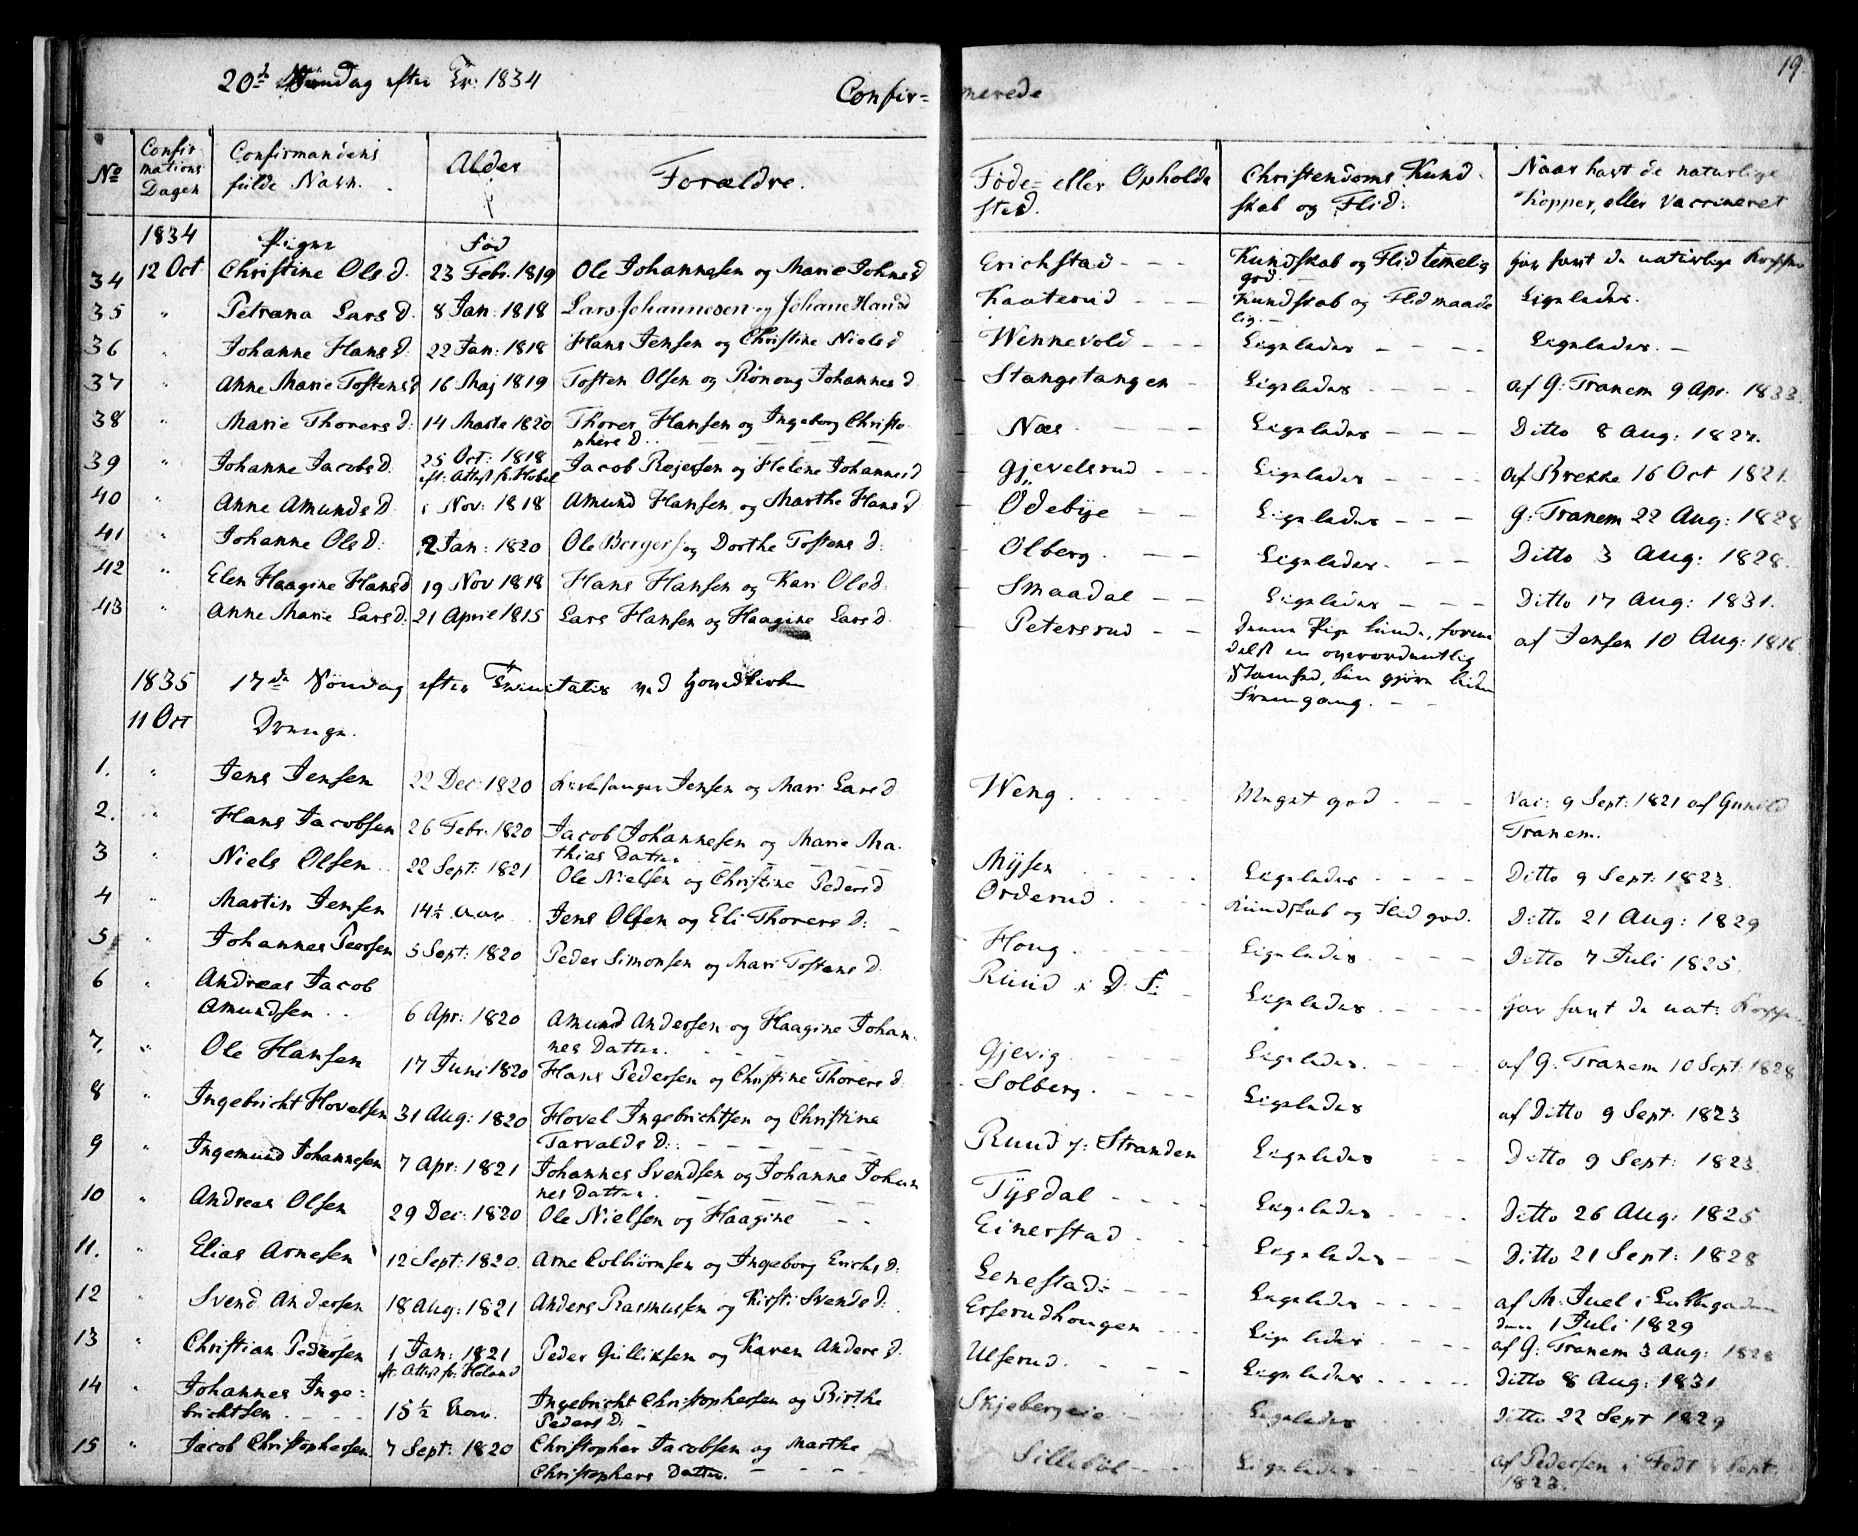 20de Søndag efter Tr: 1834
Confir=
merede
19.
No
Confir
mations
Dagen
Confirmandens
fulde Navn.
Alder
Forældre.
Føde= eller Opholds
sted.
Christendoms Kund
skab og Flid.
Naar havt de naturlige
Kopper, eller vaccineret
1834 Piger Fød
34 12 Oct Christine Ols d. 23 Febr. 1819 Ole Johannesen og Marie Johnsd Erichstad - - - Kundskab og Flid temelig god. har havt de naturlige Kopper
35 " Petrana Lars d. 8 Jan: 1818 Lars Johannesen og Johane Hansd Kaaterud - - - Kundskab og Flid maade lig. - Ligeledes.
36 " Johanne Hans d. 22 Jan: 1818 Hans Jensen og Christine Niels d Wennevold - - - Ligeledes - - - - Ligeledes. -
37 " Anne Marie Tostens d 16 Maj 1819 Tosten Olsen og Rønoug Johannes d. Stangstangen - Ligeledes - - - - af G: Tranem 9 Apr. 1833.
38 " Marie Thorers d: 14 Marts 1820 Thorer Hansen og Ingeborg Christo
phers d. Næs - - - Ligeledes - - - - Ditto 8 Aug: 1827.
39 " Johanne Jacobs d: 25 Oct: 1818
eft: Attest fr. Hobel Jacob Rejersen og Helene Johannesd Gjevelsrud - - Ligeledes - - - af Brekke 16 Oct 1821.
40 " Anne Amunds d. 1 Nov: 1818 Amund Hansen og Marthe Hans d Ödebye - - Ligeledes - - - G: Tranem 22 Aug: 1828
41 " Johanne Ols d: 2 Jan: 1820 Ole Bergers og Dorthe Tostens d: Olberg. - - Ligeledes. - - Ditto 3 Aug: 1828.
42 " Elen Haagine Hansd 19 Nov 1818 Hans Hansen og Kari Ols d: Smaadal - - Ligeledes - - - Ditto 17 Aug: 1831.
43 " Anne Marie Lars d. 21 April 1815 Lars Hansen og Haagine Lars d. Petersrud - - Denne Pige kunde, forme
delst en overordentlig
Sløvhed, kun gjøre liden
Fremgang. - - af Jensen 10 Aug: 1816
1835 17de Søndag efter Trinitatis ved Hovedkirken
11 Oct Drenge.
1. " Jens Jensen 22 Dec: 1820 Kirkesanger Jensen og Mari Lars d. Weng. - - - - Meget god - - - Vac: 9 Sept: 1821 af Gunild
Tranem.
2. " Hans Jacobsen 26 Febr. 1820 Jacob Johannesen og Marie Ma
thias Datter Mÿsen - - - - Ligeledes - - - - Ditto 9 Sept: 1823.
3 " Niels Olsen. 22 Sept: 1821 Ole Nielsen og Christine Peders d Orderud - - - - Kundskab og Flid god. Ditto 21 Aug: 1829
4 " Martin Jensen 14½ Aar Jens Olsen og Eli Thorers d: - Houg - - - - Ligeledes - - - - Ditto 7 Juli 1825.
5 " Johannes Peersen 5 Sept: 1820 Peder Simonsen og Mari Tostens d. Ruud i D. F: - Ligeledes - - - har havt de nat: Kopper
6 " Andreas Jacob
Amundsen. . 6 Apr: 1820 Amund Andersen og Haagine Johan
nes Datter. Gjevig. - - - Ligeledes. - - - af G: Tranem 10 Sept: 1828
7. " Ole Hansen 17 Juni 1820 Hans Pedersen og Christine Thorers d. Solberg. - - - Ligeledes af Ditto 9 Sept: 1823
8 " Ingebricht Hovelsen 31 Aug: 1820 Hovel Ingebrichtsen og Christine
Tarvalds d: - - - Ruud v: Stranden Ligeledes - - Ditto 9 Sept: 1823
9 " Ingemund Johannesen 7 Apr: 1821 Johannes Svendsen og Johanne Johan
nes Datter. - - - Tÿsdal - - - Ligeledes - - - Ditto 26 Aug: 1825
10 " Andreas Olsen 29 Dec: 1820 Ole Nielsen og Haagine - - Einerstad - - - Ligeledes - - - Ditto 21 Sept: 1828
11. " Elias Arnesen 12 Sept: 1820. Arne Colbiörnsen og Ingeborg Erichs d: Lenestad: - - Ligeledes - - - - af M: Juel i
den 1 Juli 1829
12 " Svend Andersen 18 Aug: 1821 Anders Rasmussen og Kirsti Svends d: Erserudhougen - - - Ligeledes - - - - af G: Tranem 3 Aug: 1828
13 " Christian Pedersen 1 Jan: 1821
eft. Attest fr: Høland Peder Gulliksen og Karen Anders d. Ulserud. - - - Ligeledes - - - - Ditto 8 Aug: 1831
14 " Johannes Inge=
brichtsen. - - - 15½ Aar. Ingebricht Christophersen og Birthe
Peders d: - Skjebergeie - - - Ligeledes - - - Ditto 22 Sept 1829
15 " Jacob Christophersen. 7 Sept: 1820 Christopher Jacobsen og Marthe
Christophers Datter. - - - - Sillebøl - - Ligeledes - - - af Pedersen i Sept:
1823.